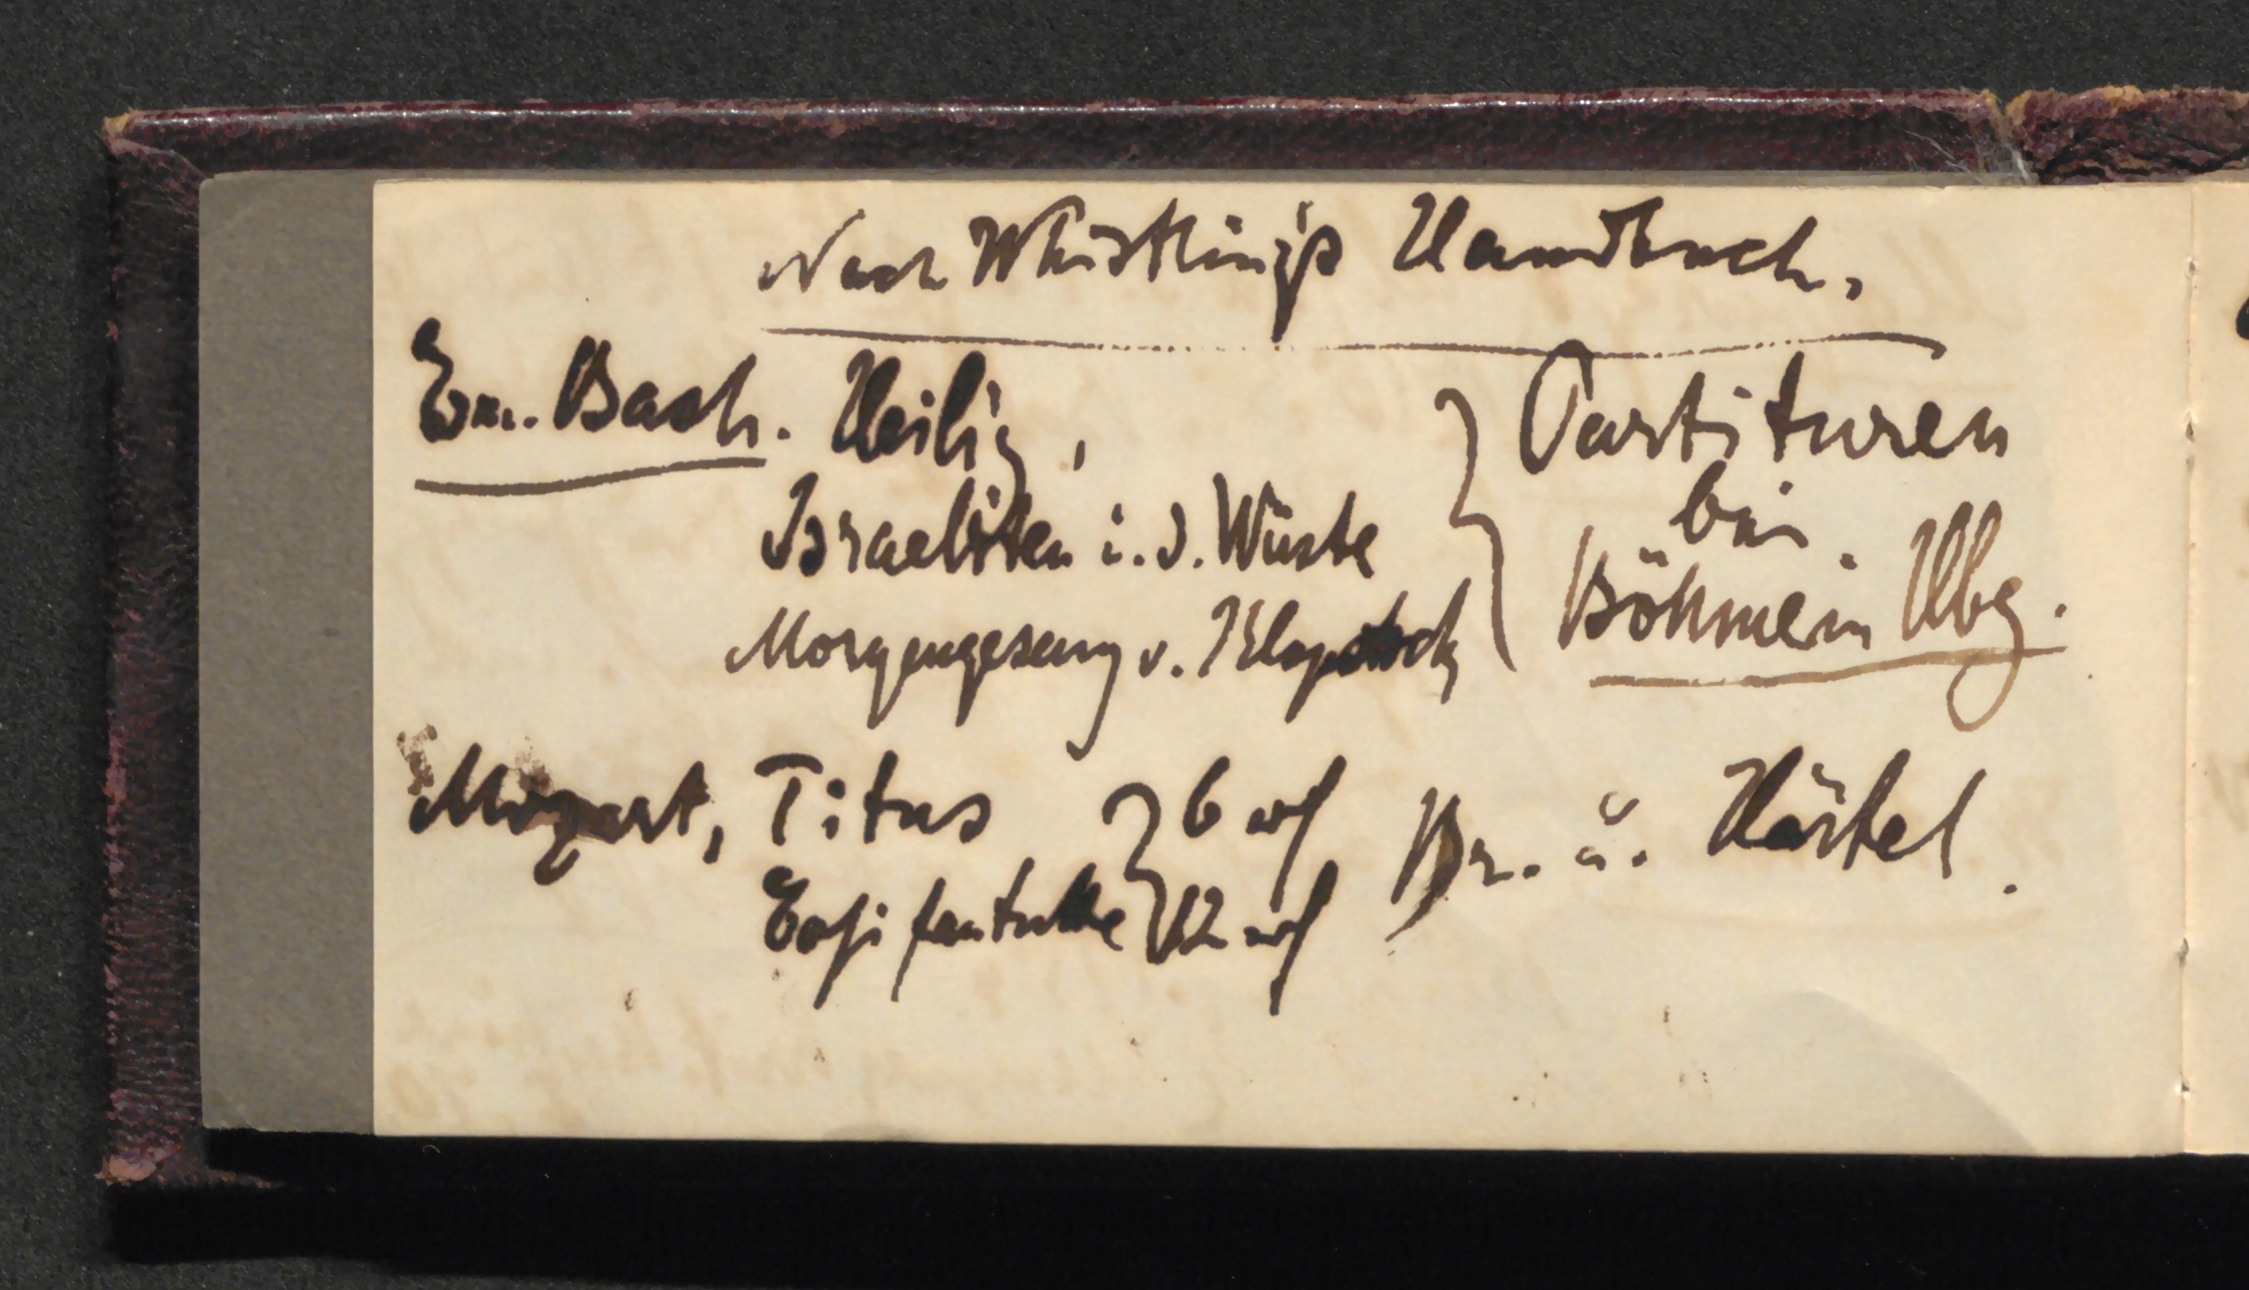 Nach Whistling's Handbuch.
Em. Bach. Heilig,
Israeliten i. d. Wüste
Morgengesang v. Klopstock
Partituren
bei
Böhme in Hbg.
Mozart, Titus 6 rf Br. u. Härtel.
Cosi fantutte 12 rf